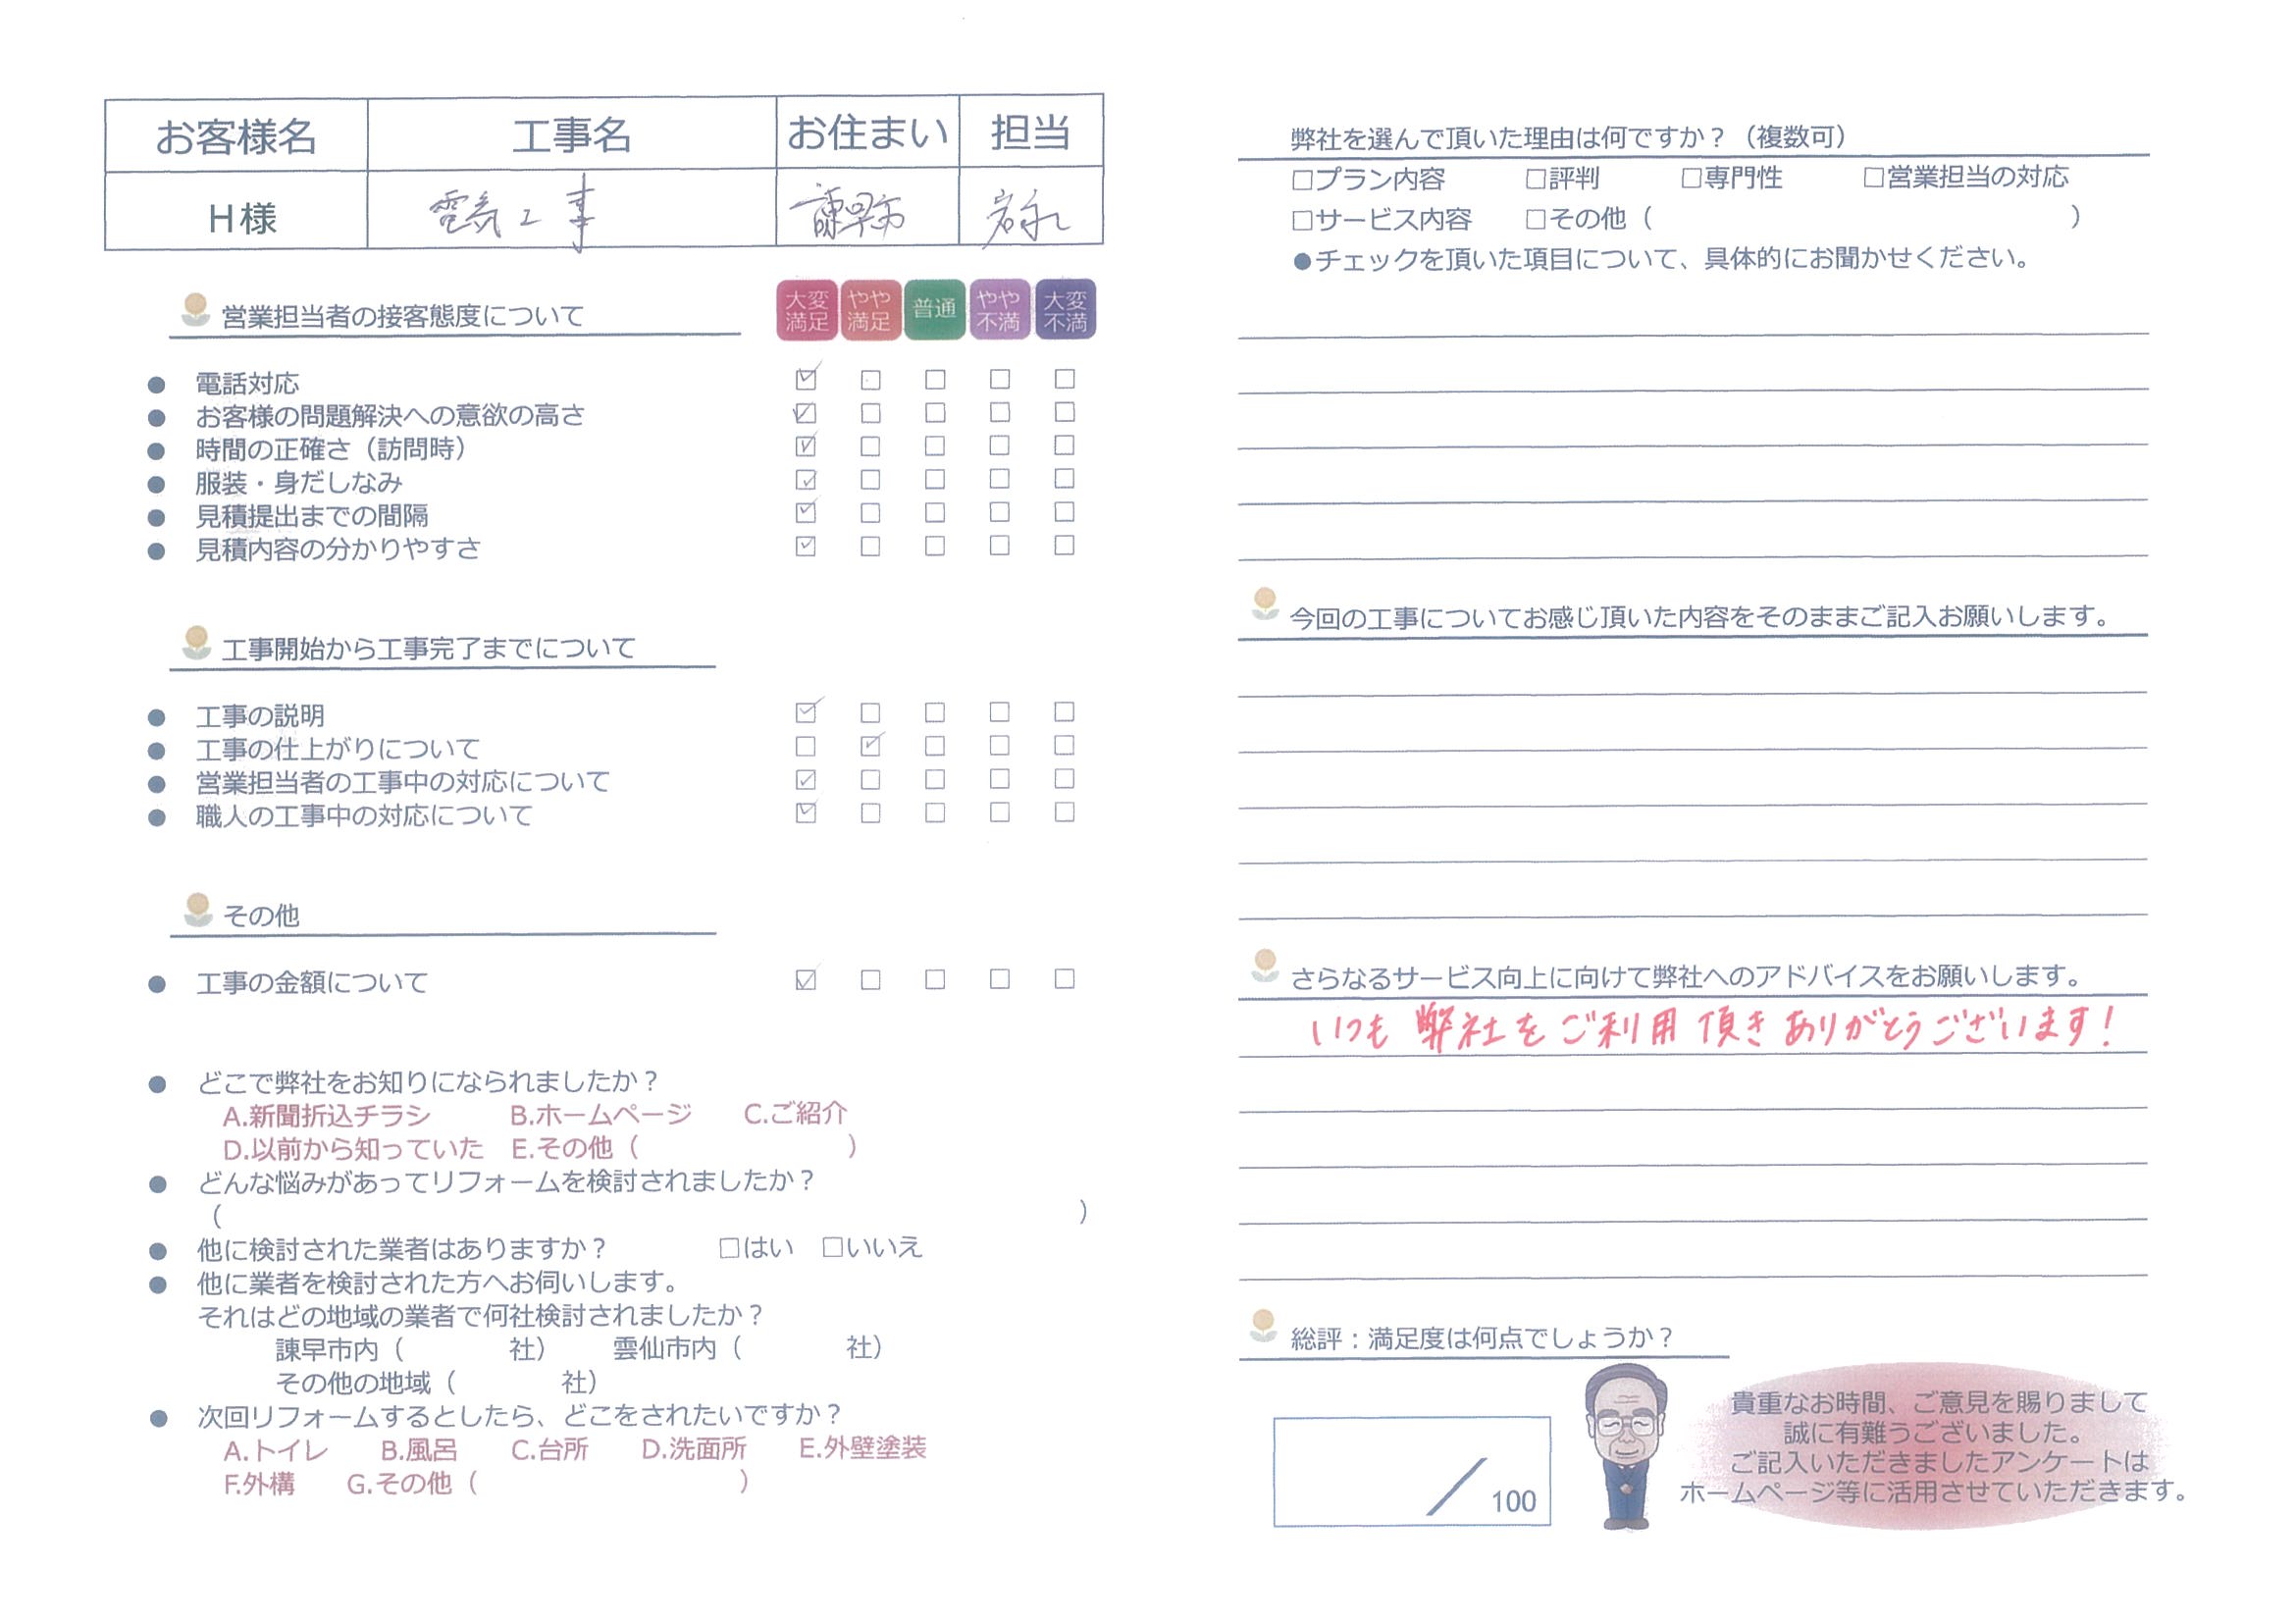 お客様名 工事名 お住まい 担当
H様 電気工事 諫早市 岩永
営業担当者の接客態度について
大変満足 やや満足 普通 やや不満 大変不満
● 電話対応 ☑ □ □ □ □
● お客様の問題解決への意欲の高さ ☑ □ □ □ □
● 時間の正確さ（訪問時） ☑ □ □ □ □
● 服装・身だしなみ ☑ □ □ □ □
● 見積提出までの間隔 ☑ □ □ □ □
● 見積内容の分かりやすさ ☑ □ □ □ □
工事開始から工事完了までについて
● 工事の説明 ☑ □ □ □ □
● 工事の仕上がりについて □ ☑ □ □ □
● 営業担当者の工事中の対応について ☑ □ □ □ □
● 職人の工事中の対応について ☑ □ □ □ □
その他
● 工事の金額について ☑ □ □ □ □
● どこで弊社をお知りになられましたか？
A.新聞折込チラシ B.ホームページ C.ご紹介
D.以前から知っていた E.その他（ ）
● どんな悩みがあってリフォームを検討されましたか？
（ ）
● 他に検討された業者はありますか？ □はい □いいえ
● 他に業者を検討された方へお伺いします。
それはどの地域の業者で何社検討されましたか？
諫早市内（ 社） 雲仙市内（ 社）
その他の地域（ 社）
● 次回リフォームするとしたら、どこをされたいですか？
A.トイレ B.風呂 C.台所 D.洗面所 E.外壁塗装
F.外構 G.その他（ ）
弊社を選んで頂いた理由は何ですか？（複数可）
□プラン内容 □評判 □専門性 □営業担当の対応
□サービス内容 □その他（ ）
●チェックを頂いた項目について、具体的にお聞かせください。
今回の工事についてお感じ頂いた内容をそのままご記入お願いします。
さらなるサービス向上に向けて弊社へのアドバイスをお願いします。
いつも弊社をご利用頂きありがとうございます！
総評：満足度は何点でしょうか？
／100
貴重なお時間、ご意見を賜りまして
誠に有難うございました。
ご記入いただきましたアンケートは
ホームページ等に活用させていただきます。